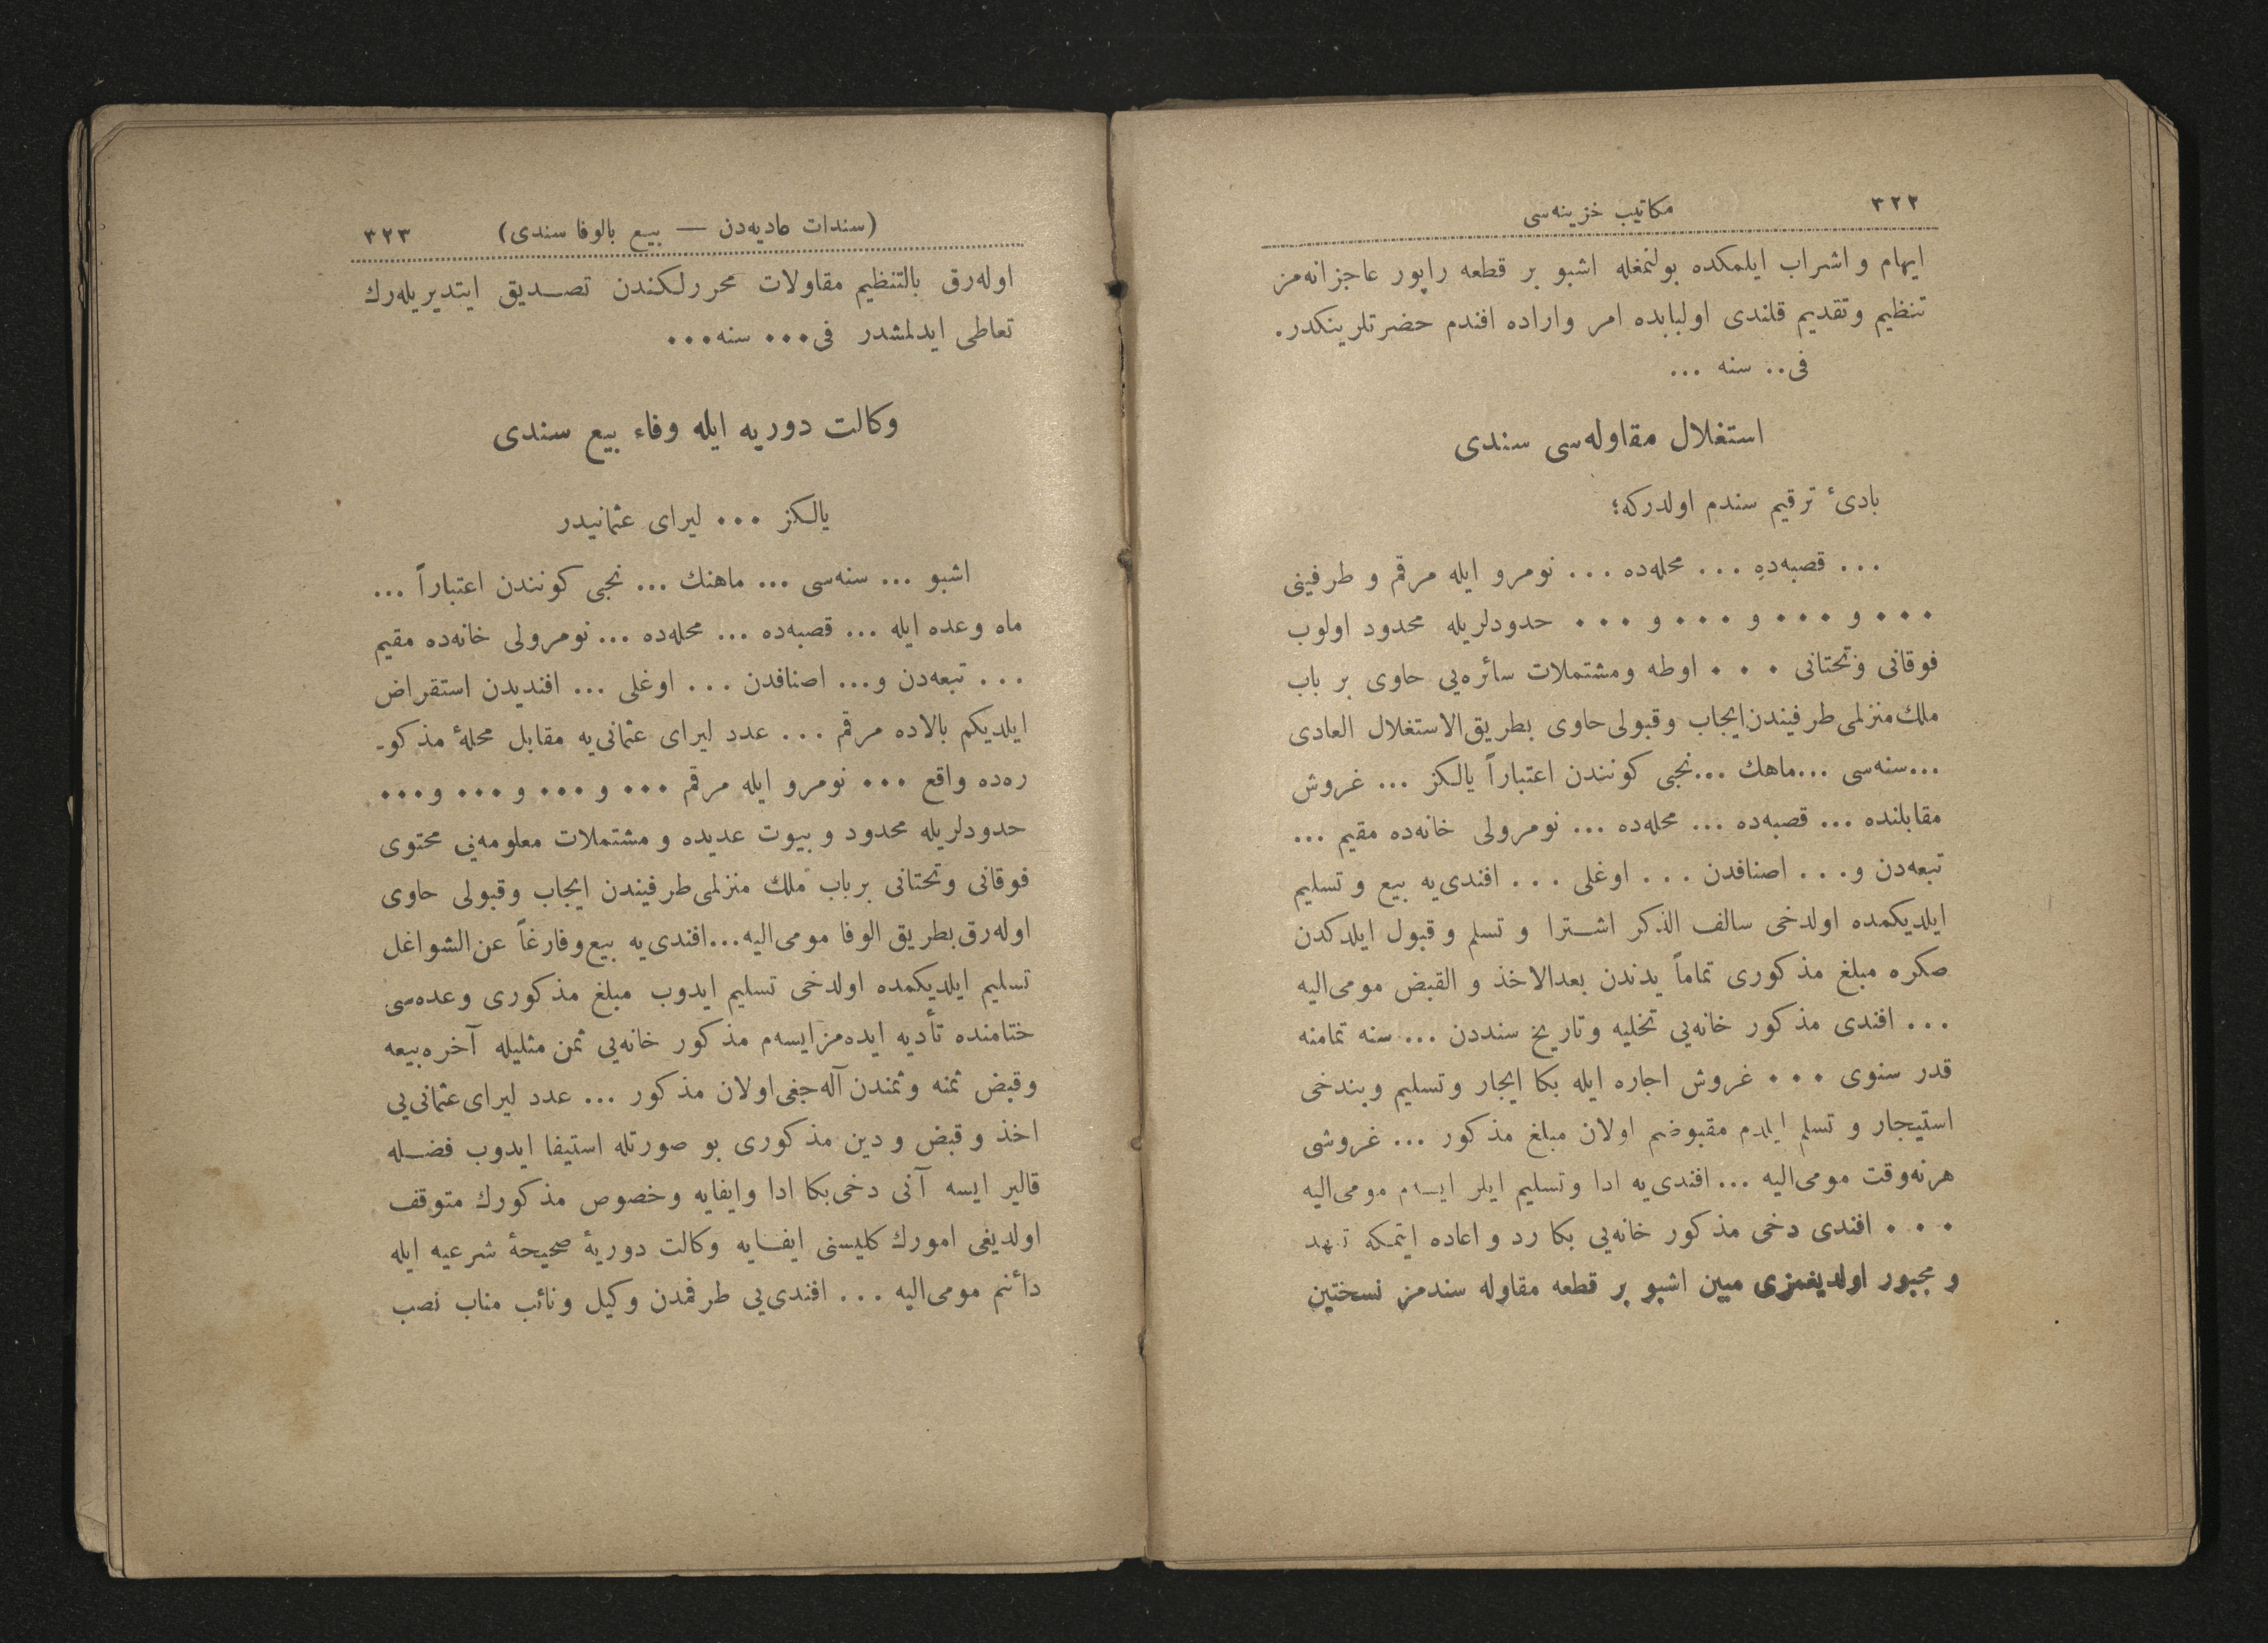 ٣٢٢ مكاتيب خزينه‌سى
ايهام و اشراب ايلمكده بولنمغله اشبو بر قطعه راپور عاجزانه‌مز
تنظيم وتقديم قلندى اولبابده امر واراده افندم حضرتلرينكدر.
فى.. سنه ...
استغلال مقاوله‌سى سندى
بادئ ترقيم سندم اولدركه؛
... قصبه‌ده ... محله‌ده ... نومرو ايله مرقم و طرفينى
... و ... و ... و ... حدودلريله محدود اولوب
فوقانى وتحتانى ... اوطه ومشتملات سائره‌يى حاوى بر باب
ملك منزلمى طرفيندن ايجاب وقبولى حاوى بطريق الاستغلال العادى
...سنه‌سى ...ماهك ...نجى كونندن اعتباراً يالكز ... غروش
مقابلنده ... قصبه‌ده ... محله‌ده ... نومرولى خانه‌ده مقيم ...
تبعه‌دن و... اصنافدن ... اوغلى ... افندى‌يه بيع و تسليم
ايلديكمده اولدخى سالف الذكر اشــترا و تسلم و قبول ايلدكدن
صكره مبلغ مذكورى تماماً يدندن بعدالاخذ و القبض مومى‌اليه
... افندى مذكور خانه‌يى تخليه وتاريخ سنددن ... سنه تمامنه
قدر سنوى ... غروش اجاره ايله بكا ايجار وتسليم وبندخى
استيجار و تسلم ايلدم مقبوضم اولان مبلغ مذكور ... غروشى
هرنه‌وقت مومى‌اليه ... افندى‌يه ادا وتسليم ايلر ايسه‌م مومى‌اليه
... افندى دخى مذكور خانه‌يى بكا رد و اعاده ايتمكه تعهد
و مجبور اولديغمزى مبين اشبو بر قطعه مقاوله سندمز نسختين
(سندات عاديه‌دن — بيع بالوفا سندى) ٣٢٣
اوله‌رق بالتنظيم مقاولات محررلكندن تصــديق ايتديريله‌رك
تعاطى ايدلمشدر فى... سنه...
وكالت دوريه ايله وفاء بيع سندى
يالكز ... ليراى عثمانيدر
اشبو ... سنه‌سى ... ماهنك ... نجى كونندن اعتباراً ...
ماه وعده ايله ... قصبه‌ده ... محله‌ده ... نومرولى خانه‌ده مقيم
... تبعه‌دن و... اصنافدن ... اوغلى ... افنديدن استقراض
ايلديكم بالاده مرقم ... عدد ليراى عثمانى‌يه مقابل محلۀ مذكو-
ره‌ده واقع ... نومرو ايله مرقم ... و ... و ... و...
حدودلريله محدود و بيوت عديده و مشتملات معلومه‌يى محتوى
فوقانى وتحتانى برباب ملك منزلمى طرفيندن ايجاب وقبولى حاوى
اوله‌رق بطريق الوفا مومى‌اليه...افندى‌يه بيع وفارغاً عن الشواغل
تسليم ايلديكمده اولدخى تسليم ايدوب مبلغ مذكورى وعده‌سى
ختامنده تأديه ايده‌مزايسه‌م مذكور خانه‌يى ثمن مثليله آخره بيعه
وقبض ثمنه وثمندن آله‌جغى اولان مذكور ... عدد ليراى عثمانى‌يى
اخذ و قبض و دين مذكورى بو صورتله استيفا ايدوب فضــله
قالير ايسه آنى دخى بكا ادا وايفايه وخصوص مذكورك متوقف
اولديغى امورك كليسنى ايفــايه وكالت دوريۀ صحيحۀ شرعيه ايله
دائنم مومى‌اليه ... افندى‌يى طرفمدن وكيل ونائب مناب نصب